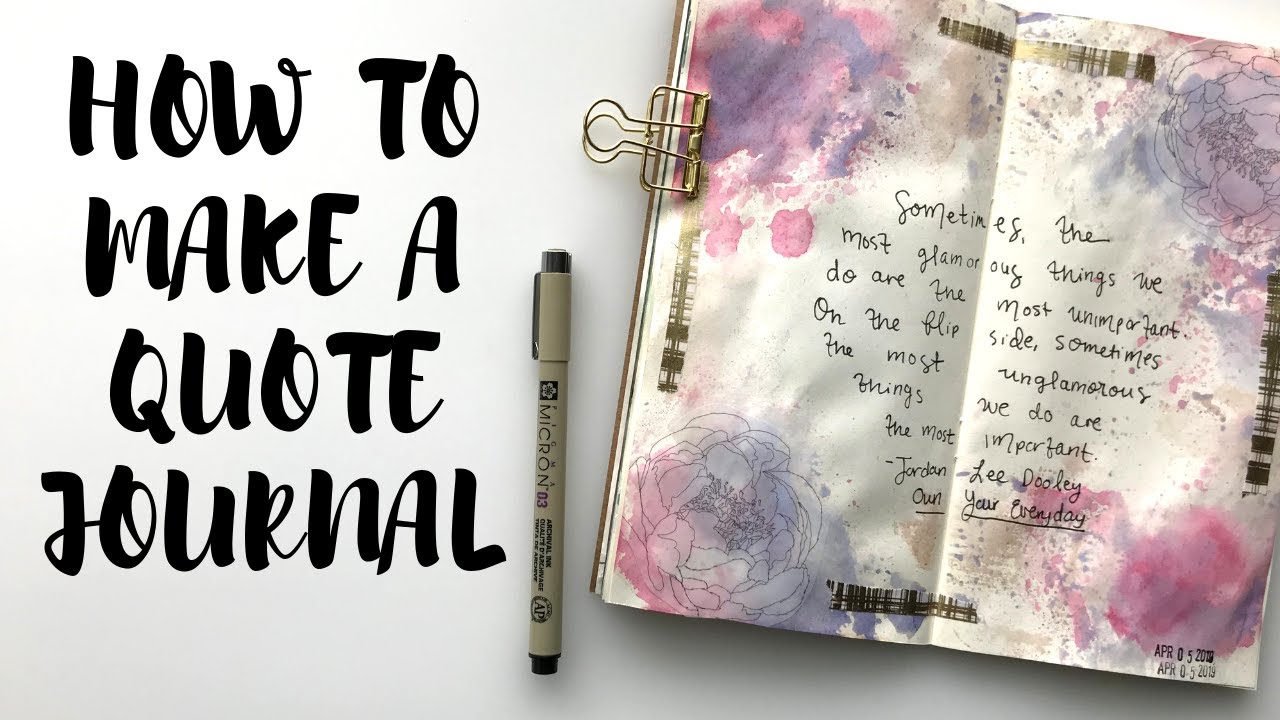 HOW TO
MAKE A
QUOTE
JOURNAL
PIGMA
MICRON 03
ARCHIVAL INK
QUALITÉ D'ARCHIVAGE
AP
Sometimes, the
most glamorous things we
do are the most unimportant.
On the flip side, sometimes
the most unglamorous
things we do are
the most important.
-Jordan Lee Dooley
Own Your Everyday
APR 05 2019
APR 05 2019